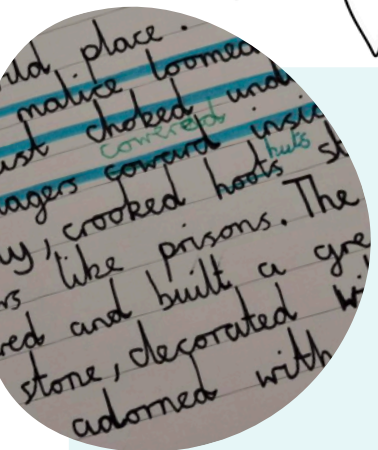 place.
malice loomed
choked und
cowered
coward insi
huts
, crooked hoots st
like prisons. The
red and built a gre
stone, decorated wi
adorned with